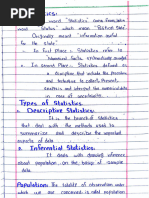 Statistics:
The word "Statistics" came from latin
word "Status" which mean "Political State"
Originally meant "information useful
for the State".
In First Place: Statistics refer to
"Numerical facts systematically arranged"
In Second Place: Statistics defined as
a discipline that include the procedures
and techniques to collect Process
and
in case of uncertainty.
Types of Statistics
1. Descriptive Statistics:
It is the branch of Statistics
that deal with the methods used to
summarize and describe the important
aspects of data
2. Inferential Statistics:
It deals with drawing inference
about population on the basis of sample
data
Population: The totality of observation under
which we are concerned is called population